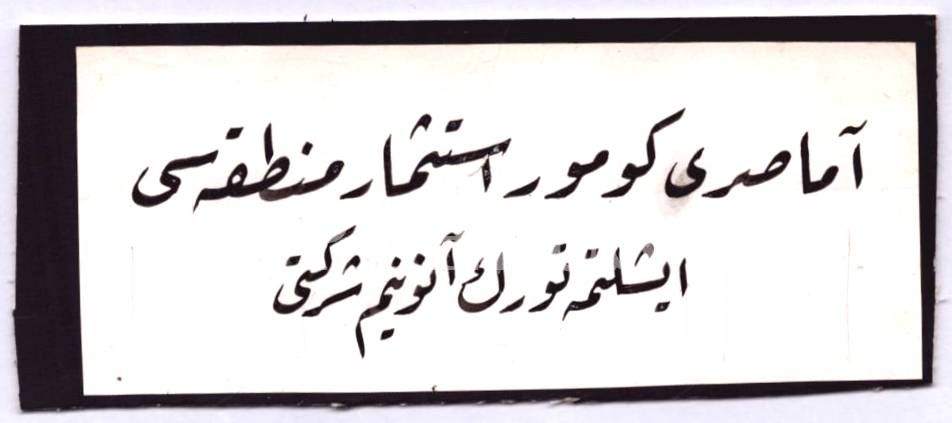 آماصری كومور استثمار منطقه سی
ایشلتمه تورك آنونیم شركتی